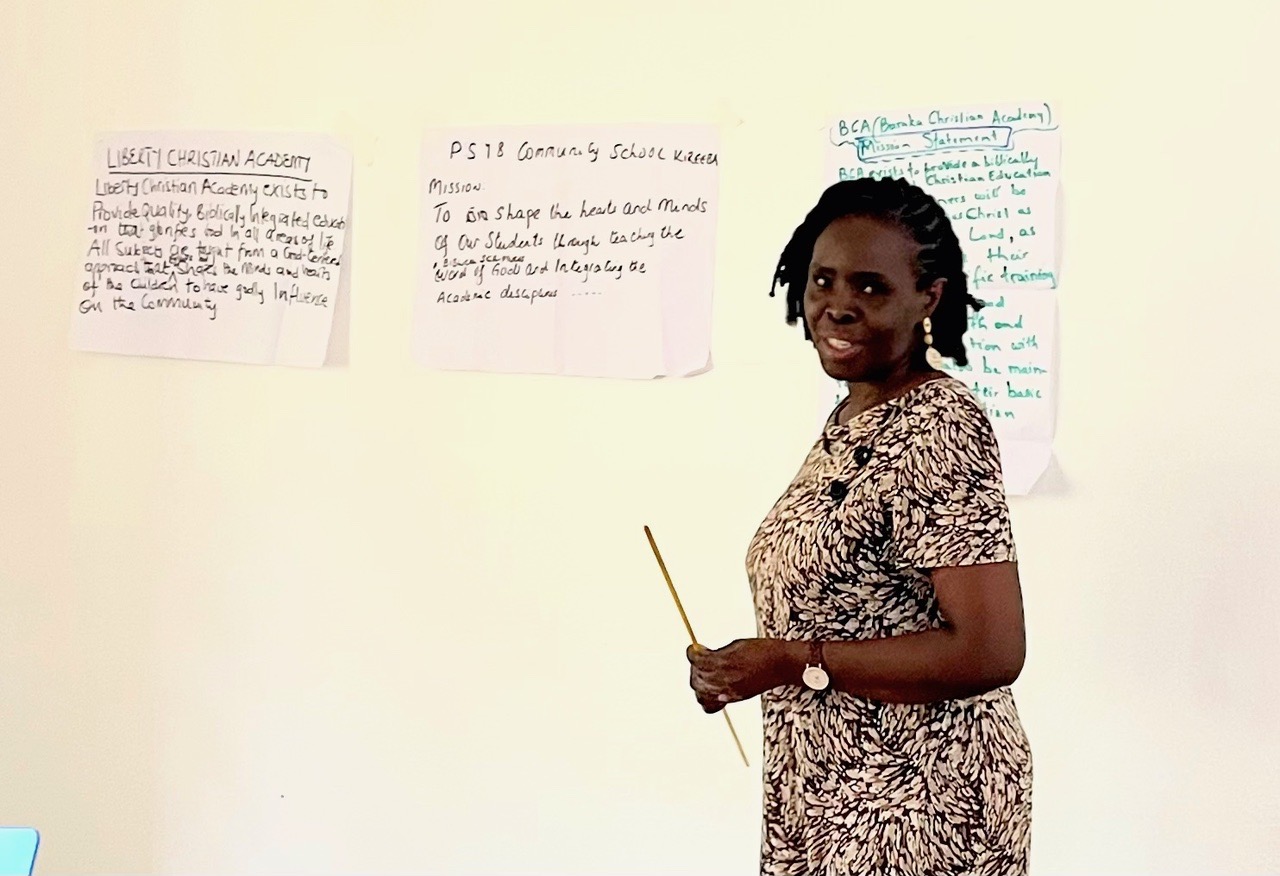 LIBERTY CHRISTIAN ACADEMY
Liberty Christian Academy exists to
Provide Quality, Biblically Integrated educati
-on that glorifies God in all areas of life
All Subjects are taught from a God-Centered
approach that shapes the minds and hearts
of the children to have godly Influence
on the Community
PS 78 Community School
Mission.
To shape the hearts and minds
of our students through teaching the
word of God and Integrating the
Academic disciplines .....
BCA (Baraka Christian Academy)
Mission Statement
BCA exists to provide a biblically
Christian Education
will be
us Christ as
Lord, as
their
fic training
and
th and
tion with
be main-
their basic